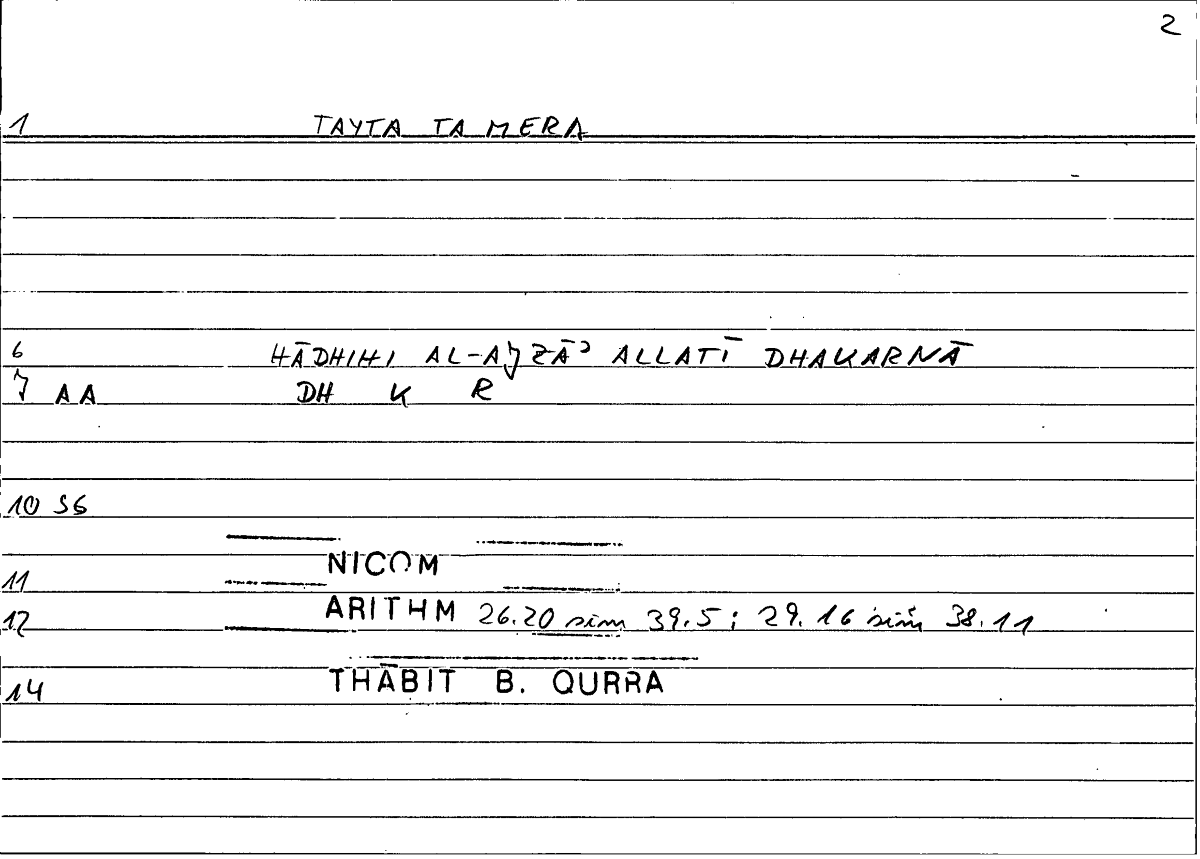 2
1 TAYTA TA MERA
6 HĀDHIHI AL-AǮZĀʾ ALLATĪ DHAKARNĀ
Ǯ A A DH K R
10 S6
NICOM
11
12 ARITHM 26.20 sim 39.5; 29.16 sim 38.11
14 THĀBIT B. QURRA